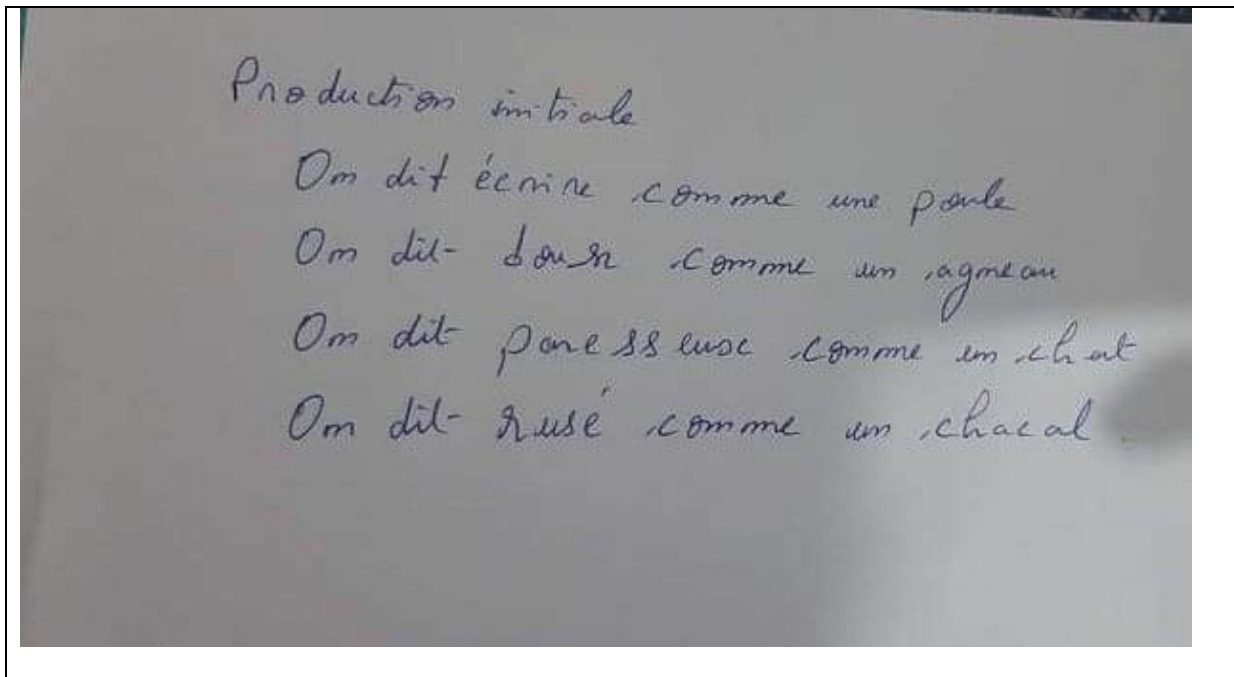 Production initiale
On dit écrire comme une poule
On dit doux comme un agneau
On dit paresseuse comme un chat
On dit rusé comme un chacal.